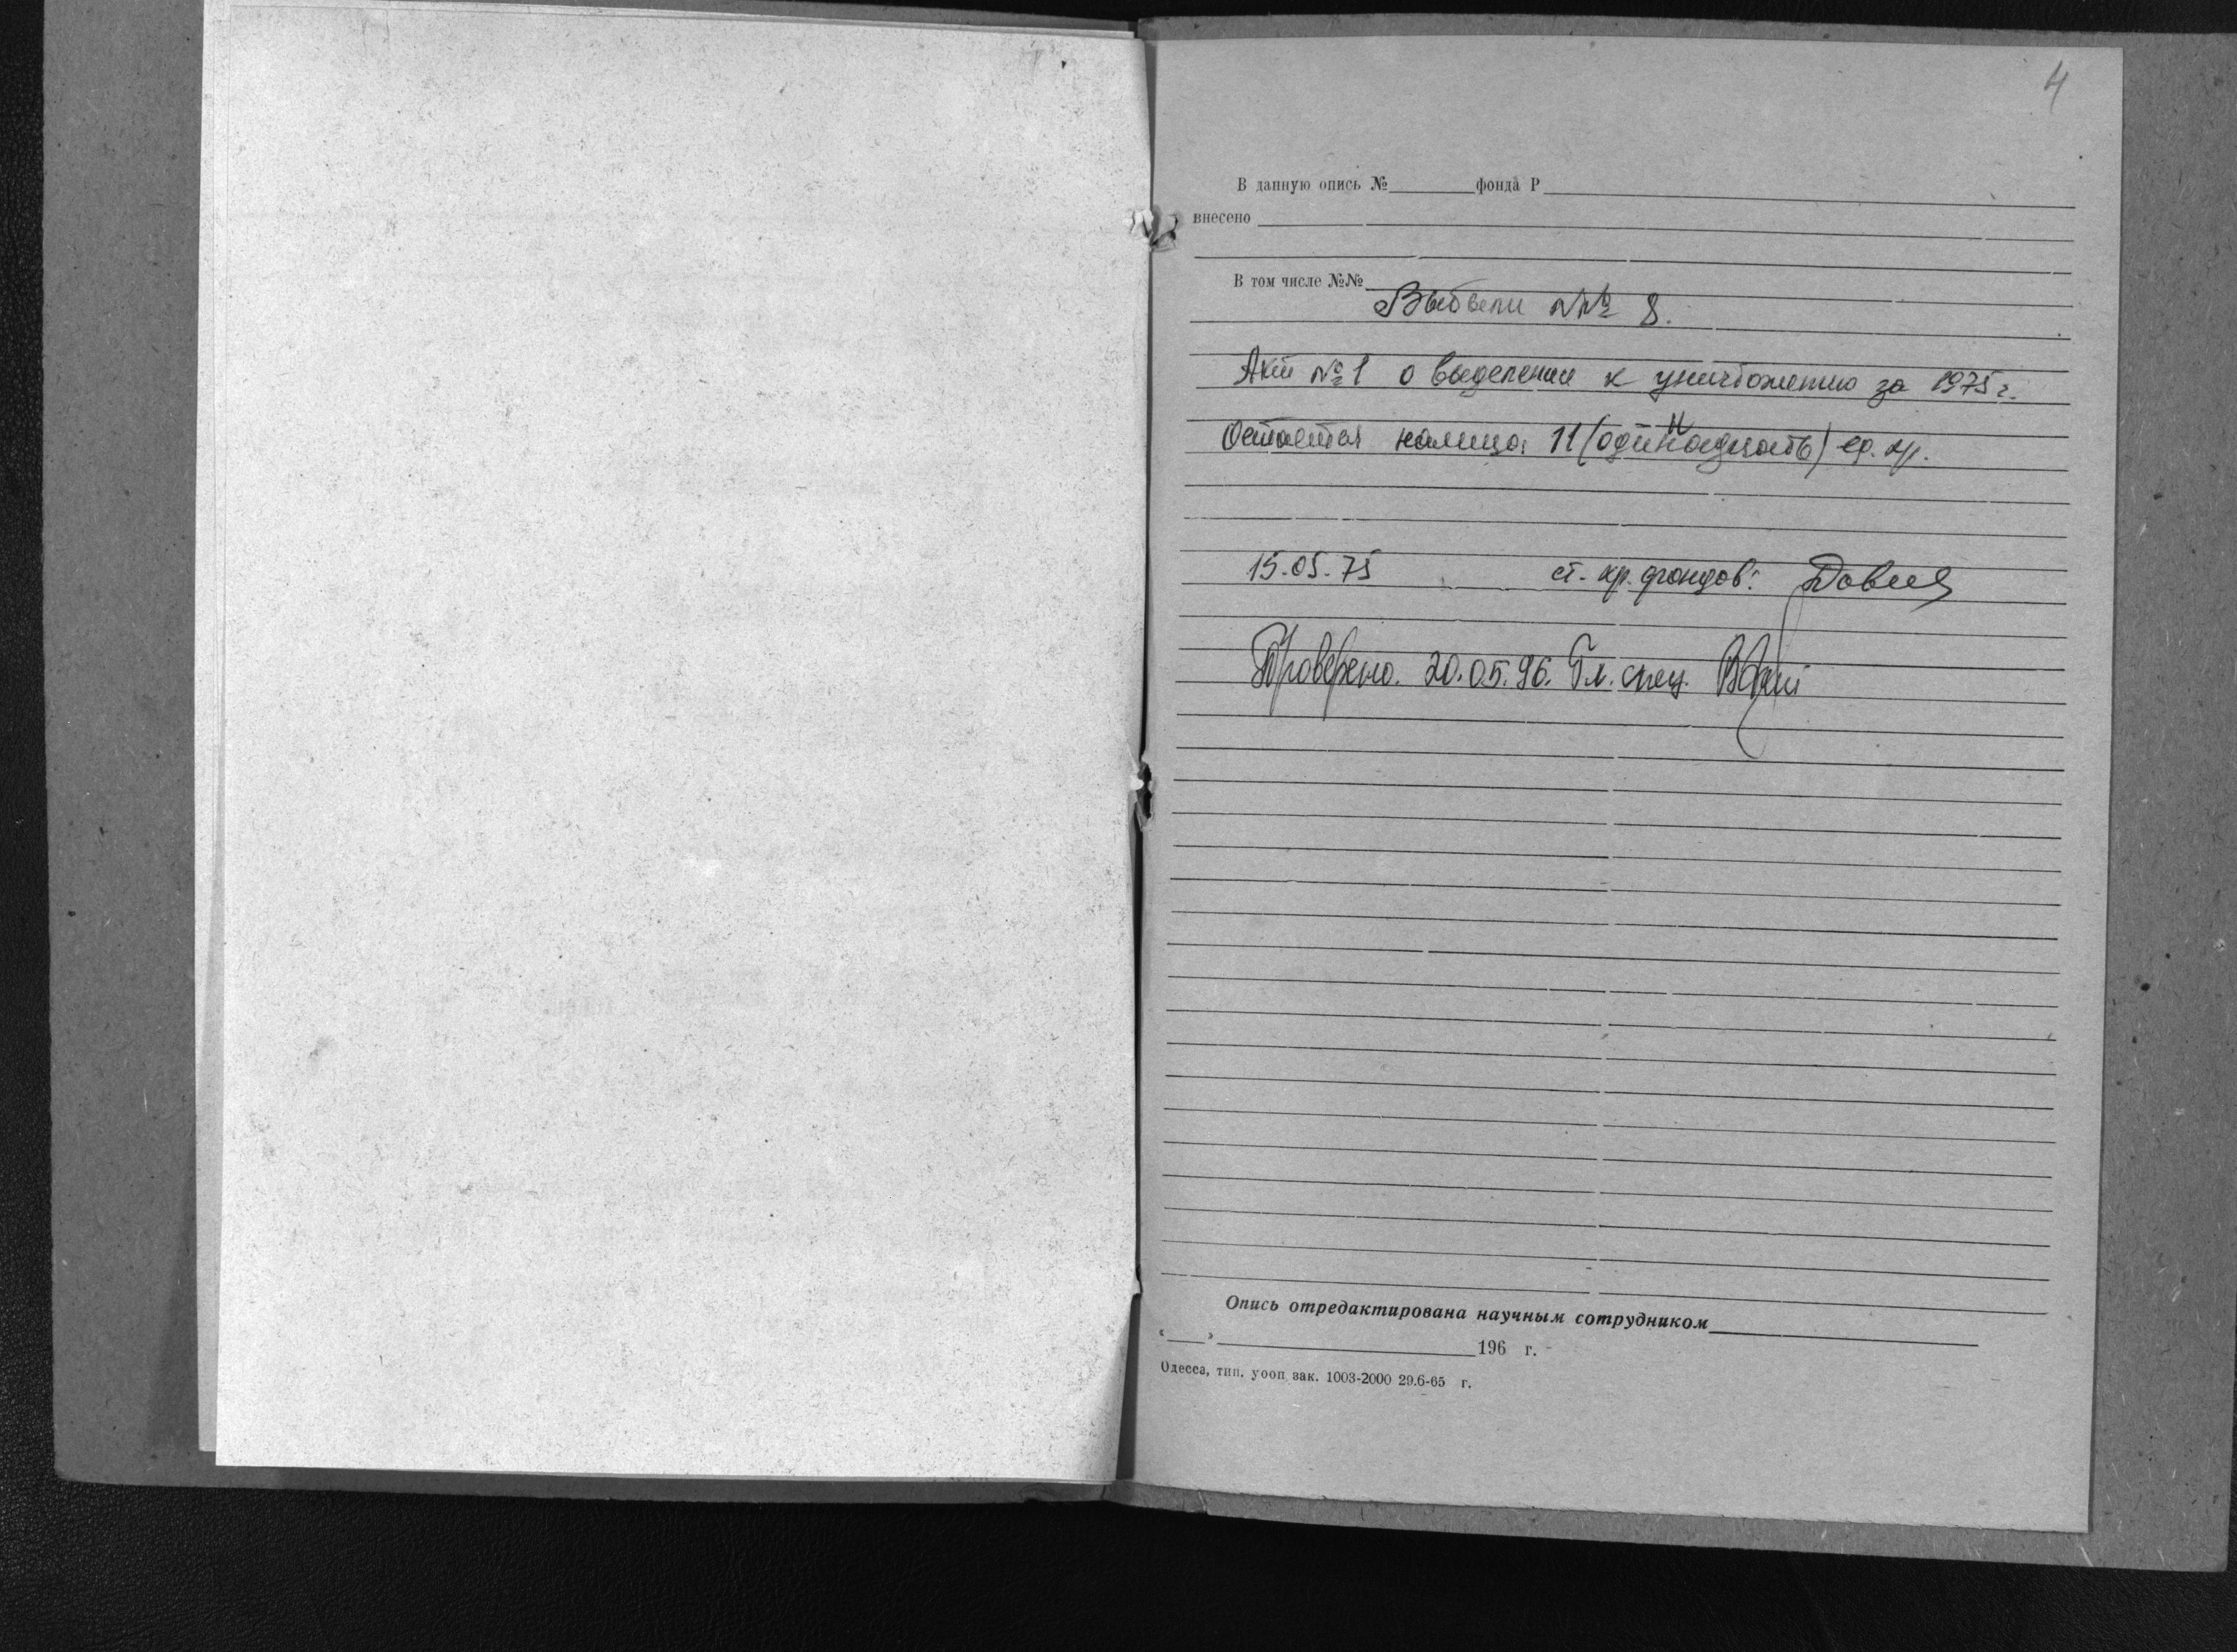 4
В данную опись № фонда Р
внесено
В том числе №№
Выбыли №№ 8.
Акт №1 о выделении к уничтожению за 1975 г.
Остается налицо: 11 (одинн
надцать) ед. хр.
15.05.75 ст. хр. фондов:
Проверено. 20.05.96. Гл. спец.
Опись отредактирована научным сотрудником
« » 196 г.
Одесса, тип. уооп зак. 1003-2000 29.6-65 г.